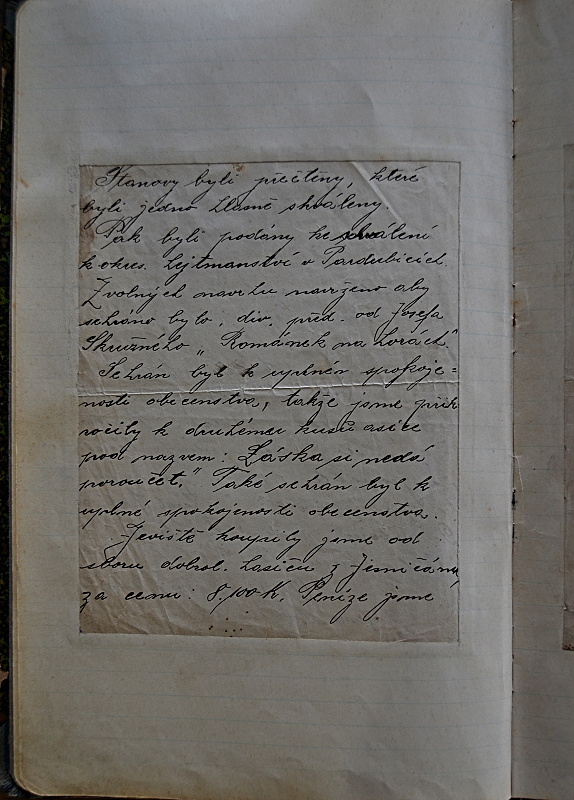 Stanovy byli přečteny, které
byli jedno hlasně shváleny.
Pak byli podány ke shválení
k okres. hejtmanství v Pardubicích.
Z volných navrhu navrženo aby
sehráno bylo, div. před. od Josefa
Skružného „Románek na horách".
Sehrán byl k uplnén spokoje=
nosti obecenstva, takže jsme přik
ročily k druhému kusu asice
pod nazvem: Láska si nedá
poroučet." Také sehrán byl k
uplné spokojenosti obecenstva.
Jeviště koupily jsme od
sboru dobrol. hasičů z
za cenu: 8.100 K. Peníze jsme